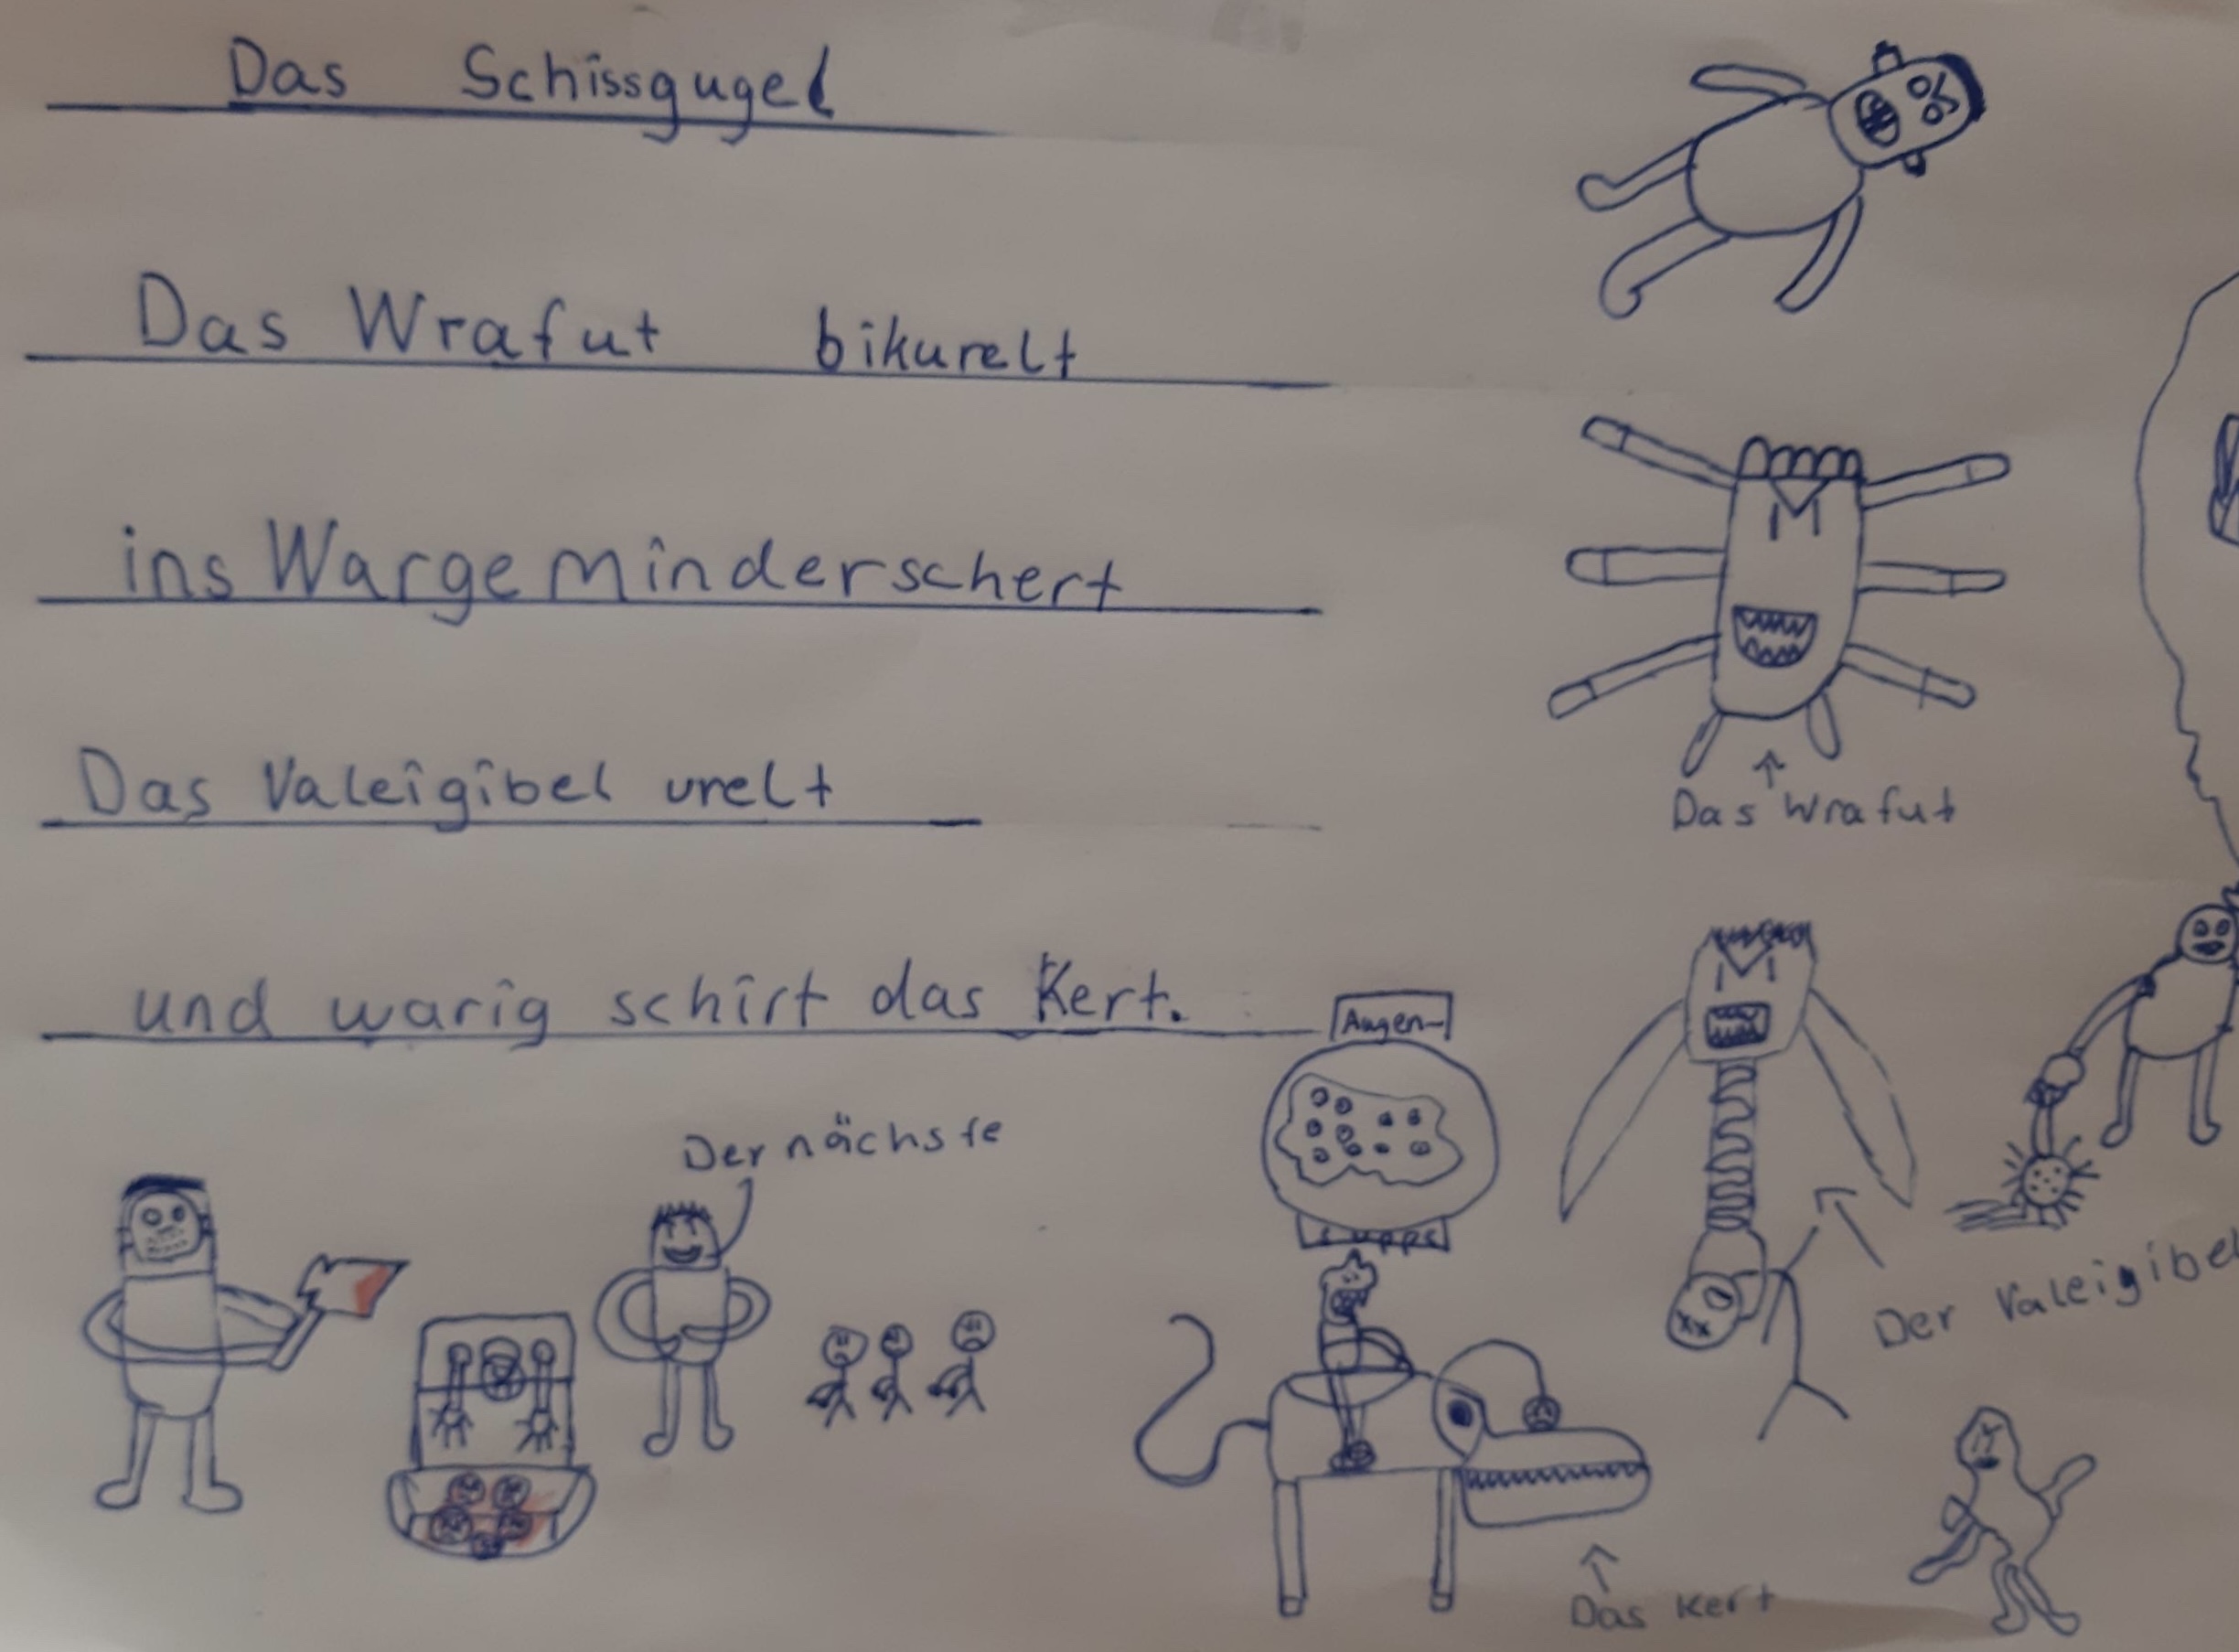 Das Schissgugel
Das Wrafut bikurelt
ins Wargeminderschert
Das Valeigibel urelt
und warig schirt das Kert.
Das Wrafut
Augen-
suppe
Der nächste
Der Valeigibel
Das Kert